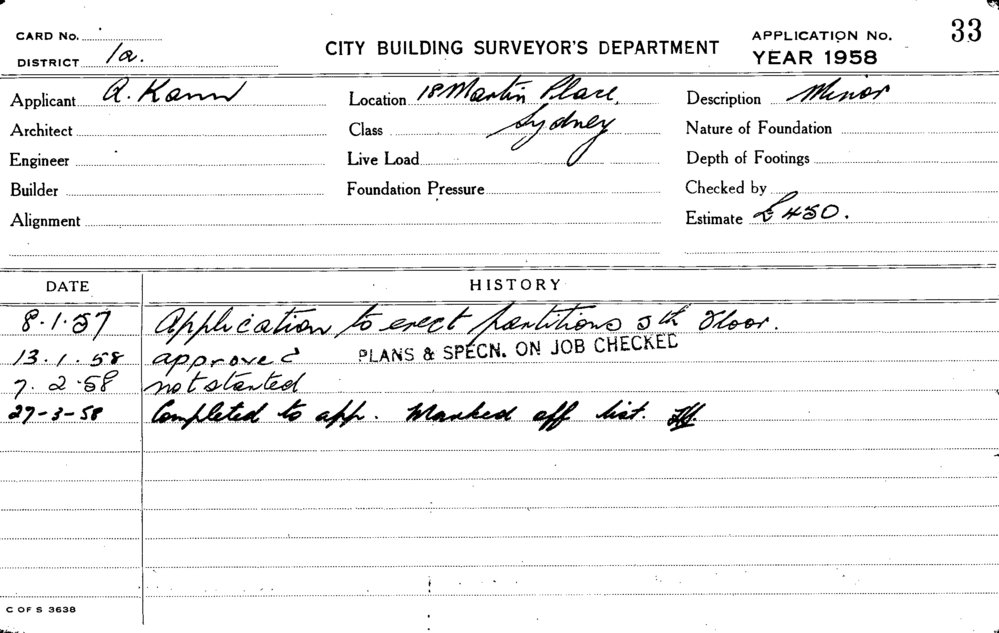 CARD No.
CITY BUILDING SURVEYOR'S DEPARTMENT
APPLICATION No. 33
DISTRICT 1a.
YEAR 1958
Applicant A. Kann Location 18 Martin Place, Description Minor
Architect Class Sydney Nature of Foundation
Engineer Live Load Depth of Footings
Builder Foundation Pressure Checked by
Alignment Estimate £450.
DATE HISTORY
8.1.57 Application to erect partitions 5th Floor.
13.1.58 approved PLANS & SPECN. ON JOB CHECKED
7.2.58 not started
27-3-58 Completed to app. Marked off list.
C OF S 3638